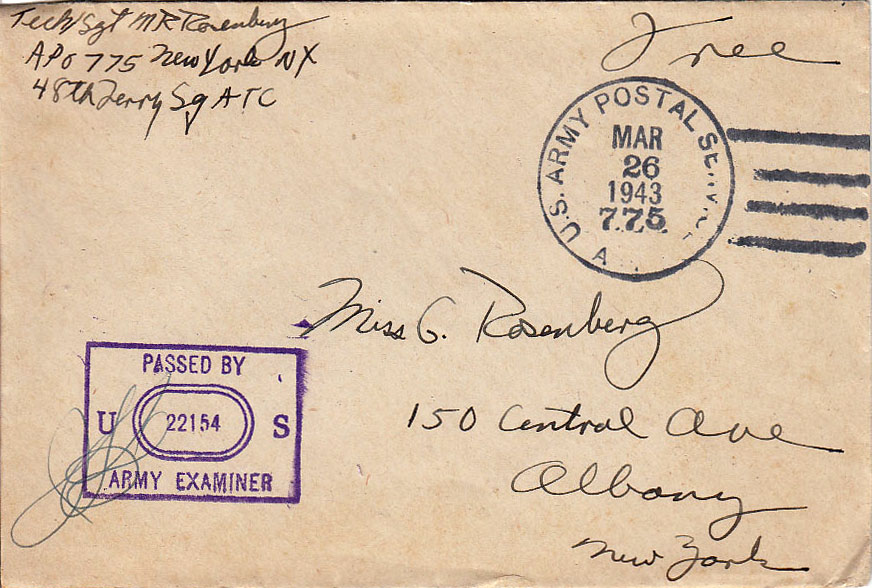 Tech/Sgt M R Rosenberg
APO 775 New York NY
48th Ferry Sq ATC
Free
U.S. ARMY POSTAL SERVICE
MAR
26
1943
775
A
Miss G. Rosenberg
150 Central Ave
Albany
New York
PASSED BY
U 22154 S
ARMY EXAMINER